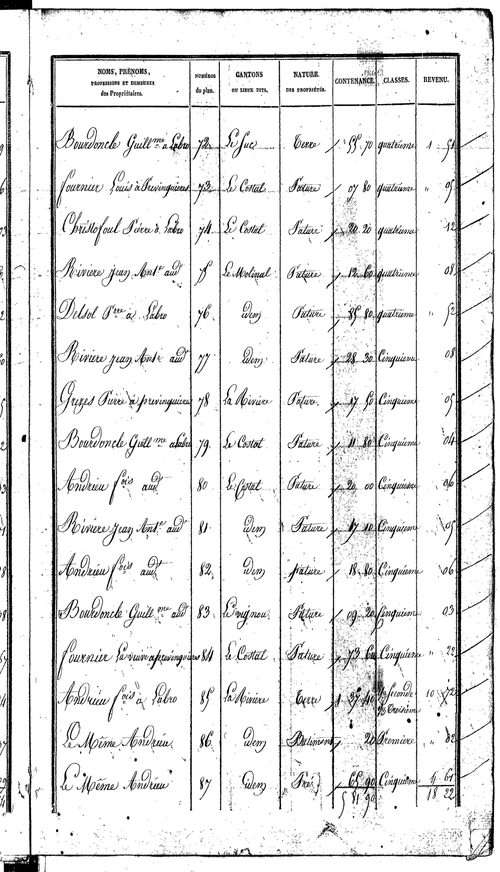 NOMS, PRÉNOMS, PROFESSIONS ET DEMEURES des Propriétaires. NUMÉROS du plan. CANTONS OU LIEUX DITS. NATURE DES PROPRIÉTÉS. CONTENANCE. CLASSES. REVENU.
Bourdoncle Guill.me à Labro 72 Le Suc Terre 55 70 quatrième 1 51
fournier Louis à Previnquieres 73 Le Costat Pature 07 80 quatrième " 05
Christofoul Pierre à Labro 74 Le Costat Pature 20 20 quatrième 12
Riviere jean Ant.e aud.t 75 Le Molinal Pature 12 60 quatrième 08
Delsol P.rre à Labro 76 idem Pature 85 80 quatrième " 52
Riviere jean Ant.e aud.t 77 idem Pature 28 30 Cinquieme 08
Grezes Pierre à previnquieres 78 La Riviere Pature 17 50 Cinquieme 05
Bourdoncle Guill.me à Labro 79 Le Costat Pature 11 80 Cinquieme 04
Andrieu f.ois aud.t 80 Le Costat Pature 20 00 Cinquieme 06
Riviere jean Ant.e aud.t 81 idem Pature 17 10 Cinquieme 05
Andrieu f.ois aud.t 82 idem pature 18 80 Cinquieme 06
Bourdoncle Guill.me aud.t 83 Le vignou Pature 09 20 Cinquieme 03
fournier La veuve à previnquieres 84 Le Costat Pature 73 60 Cinquieme " 22
Andrieu f.ois à Labro 85 La Riviere Terre 1 35 40 Seconde Troisieme 10 72
Le Même Andrieu 86 idem Batiment 20 Premiere " 02
Le Même Andrieu 87 idem Pré 65 90 Cinquieme 4 61
5 81 90 18 22